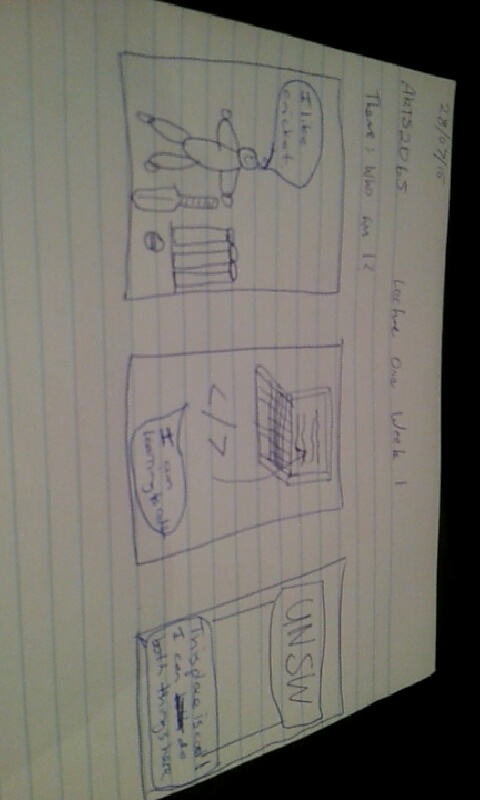 28/07/15
ARTS2065 Lecture One Week 1
Theme: Who am I?
I like
cricket
</>
I am
learning to code
UNSW
This place is cool!
I can do
both things here